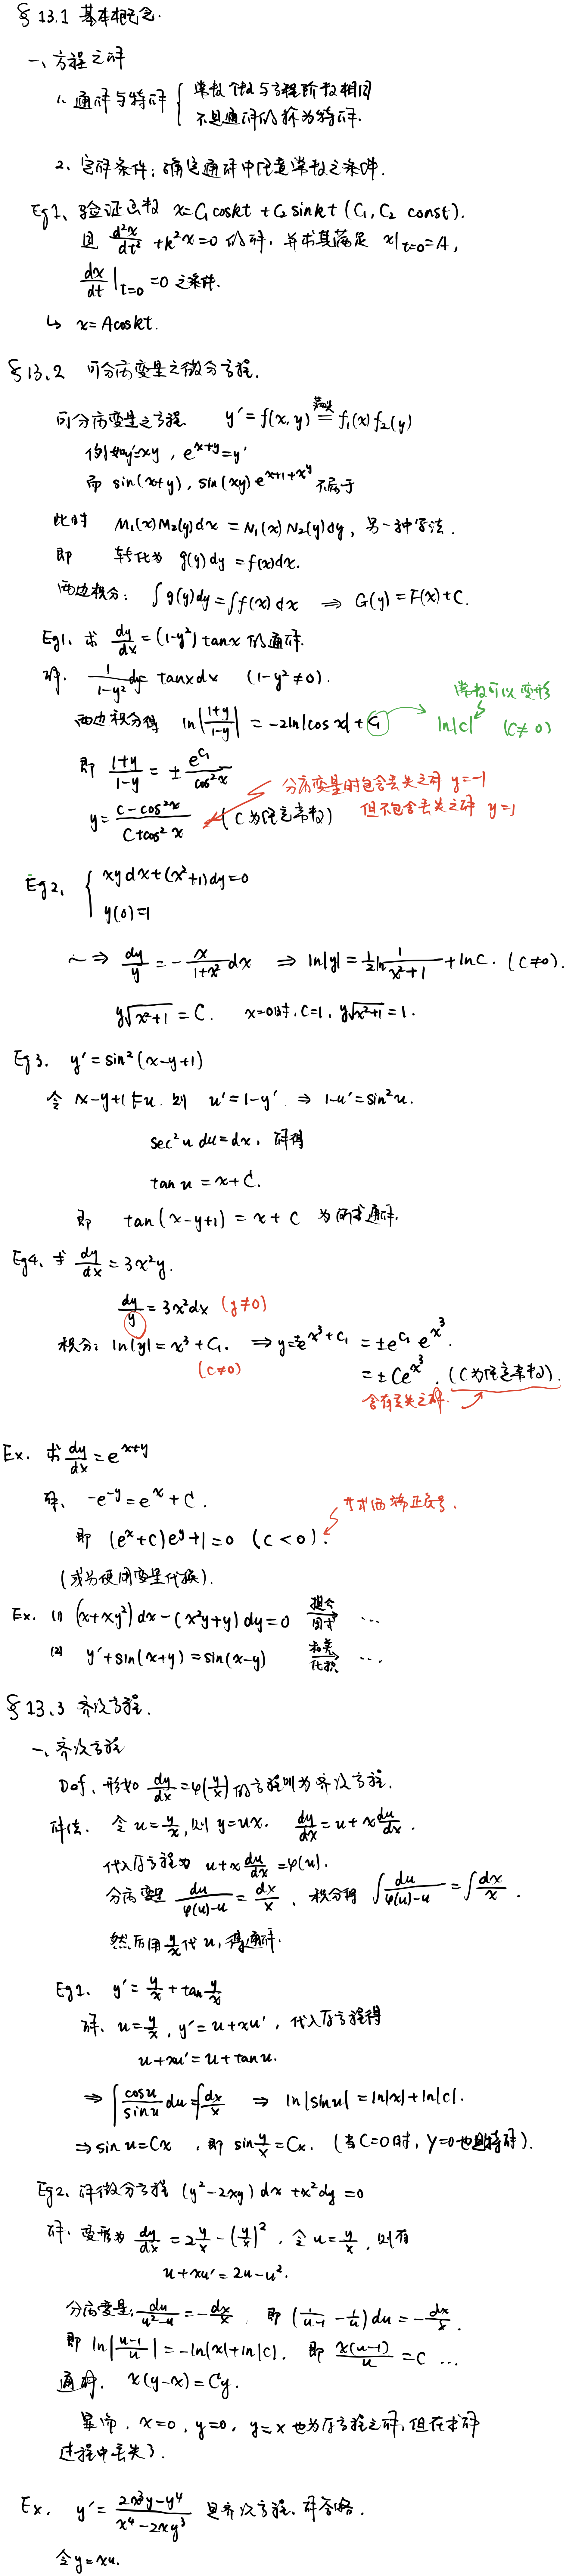 §13.1 基本概念.
一、方程之解
1. 通解与特解 { 常数个数与方程阶数相同
不是通解的称为特解.
2、定解条件：确定通解中任意常数之条件.
Eg1、验证函数 x=C₁coskt+C₂sinkt (C₁, C₂ const).
是 d²x/dt² +k²x=0 的解, 并求其满足 x|t=0=A,
dx/dt|t=0=0 之条件.
↳ x=Acoskt.
§13.2 可分离变量之微分方程.
可分离变量之方程. y′=f(x,y) = f₁(x)f₂(y)
例如y′=xy, e^(x+y)=y′
而 sin(x+y), sin(xy) e^(x+1+x^y) 不属于
此时 M₁(x)M₂(y)dx = N₁(x)N₂(y)dy, 另一种写法.
即 转化为 g(y)dy=f(x)dx.
两边积分: ∫g(y)dy=∫f(x)dx ⇒ G(y)=F(x)+C.
Eg1、求 dy/dx=(1-y²)tanx 的通解.
解. 1/(1-y²) dy= tanxdx (1-y²≠0).
常数可以变形
两边积分得 ln|(1+y)/(1-y)| = -2ln|cosx|+C₁ → ln|c| (C≠0)
即 (1+y)/(1-y) = ± e^(C₁)/cos²x
分离变量时包含丢失之解 y=-1
y=(C-cos²x)/(C+cos²x) (C为任意常数) 但不包含丢失之解 y=1
Eg2、 { xydx+(x²+1)dy=0
y(0)=1
~⇒ dy/y = -x/(1+x²) dx ⇒ ln|y|=½ln 1/(x²+1) +lnC. (C≠0).
y√(x²+1)=C. x=0时, C=1, y√(x²+1)=1.
Eg3. y′=sin²(x-y+1)
令 x-y+1=u. 则 u′=1-y′ ⇒ 1-u′=sin²u.
sec²u du=dx, 解得
tan u = x+C.
即 tan(x-y+1)=x+C 为所求通解.
Eg4、求 dy/dx=3x²y.
dy/y=3x²dx (y≠0)
积分: ln|y|=x³+C₁. ⇒ y=±e^(x³+C₁) =±e^(C₁) e^(x³).
(C≠0) =±Ce^(x³). (C为任意常数).
含有丢失之解.
Ex. 求dy/dx=e^(x+y)
解、 -e^(-y)=e^x+C.
即 (e^x+C)e^y+1=0 (C<0).
(或为使用变量代换).
Ex. (1) (x+xy²)dx-(x²y+y)dy=0 → ...
(2) y′+sin(x+y)=sin(x-y) → ...
§13.3 齐次方程.
一、齐次方程
Def、形如 dy/dx=φ(y/x)的方程叫为齐次方程.
解法. 令u=y/x, 则 y=ux. dy/dx=u+x du/dx.
代入原方程为 u+x du/dx=φ(u).
分离变量 du/(φ(u)-u)=dx/x、积分得 ∫du/(φ(u)-u)=∫dx/x.
然后用y/x代u, 得通解.
Eg1. y′=y/x+tan y/x
解、u=y/x, y′=u+xu′, 代入原方程得
u+xu′=u+tanu.
⇒ ∫cosu/sinu du=∫dx/x ⇒ ln|sinu|=ln|x|+ln|C|.
⇒ sinu=Cx, 即 sin y/x=Cx. (当C=0时, y=0也是特解).
Eg2、解微分方程 (y²-2xy)dx+x²dy=0
解. 变形为 dy/dx=2y/x-(y/x)², 令u=y/x, 则有
u+xu′=2u-u².
分离变量: du/(u²-u)=-dx/x, 即 (1/(u-1)-1/u)du=-dx/x.
即 ln|(u-1)/u|=-ln|x|+ln|C|, 即 x(u-1)/u=C ...
通解. x(y-x)=Cy.
显然, x=0, y=0, y=x也为原方程之解, 但在求解
过程中丢失了.
Ex. y′=(2x³y-y⁴)/(x⁴-2xy³) 是齐次方程、解答略.
令y=xu.